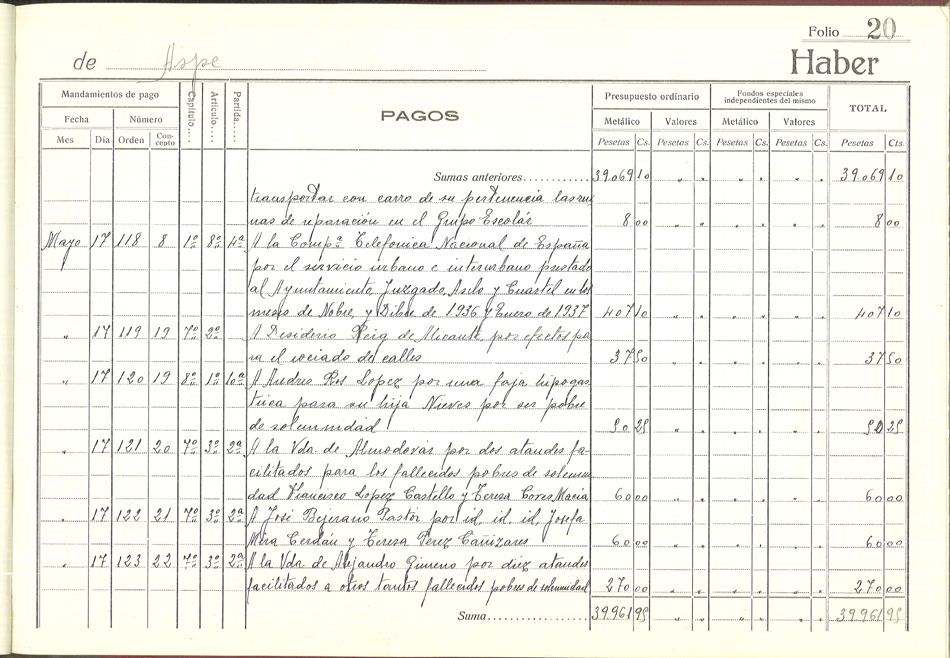 Folio 20
de Aspe Haber
Mandamientos de pago Capítulo.... Artículo.... Partida.... PAGOS Presupuesto ordinario Fondos especiales independientes del mismo TOTAL
Fecha Número Metálico Valores Metálico Valores
Mes Día Orden Concepto Pesetas Cs. Pesetas Cs. Pesetas Cs. Pesetas Cs. Pesetas Cts.
Sumas anteriores............ 39.069 10 " " " " " " 39.069 10
transportar con carro de su pertinencia las rui
nas de reparación en el Grupo Escolár 8 00 " " " " " " 8 00
Mayo 17 118 8 1º 8º 4ª A la Compª Telefonica Nacional de España
por el servicio urbano e interurbano prestado
al Ayuntamiento, Juzgado, Asilo y Cuartel en los
meses de Nobre, y Dibre de 1936 y Enero de 1937 407 10 " " " " " " 407 10
" 17 119 19 7º 2º A Desiderio Reig de Alicante, por efectos pa
ra el rociado de calles 37 50 " " " " " " 37 50
" 17 120 19 8º 1º 10ª A Andres Ros Lopez por una faja hipogas
trica para su hija Nieves por ser pobre
de solemnidad 50 25 " " " " " " 50 25
" 17 121 20 7º 3º 2ª A la Vda. de Almodovar por dos ataudes fa-
cilitados para los fallecidos pobres de solemni
dad Francisco Lopez Castello y Teresa Cores Macia 60 00 " " " " " " 60 00
" 17 122 21 7º 3º 2ª A José Bejerano Pastor por id. id. id, Josefa
Mira Cerdán y Teresa Perez Cañizares 60 00 " " " " " " 60 00
" 17 123 22 7º 3º 2ª A la Vda. de Alejandro Gimeno por diez ataudes
facilitados a otros tantos fallecidos pobres de solemnidad 270 00 " " " " " " 270 00
Suma.................... 39.961 95 " " " " " " 39.961 95